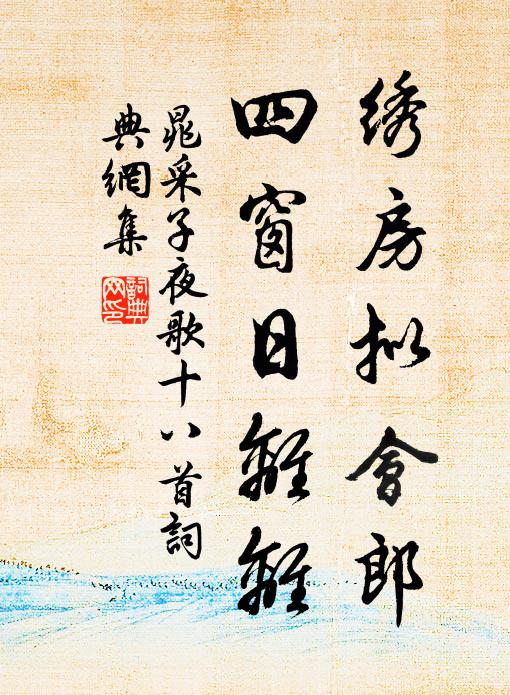 绣房拟會郎
四窗日離離
晁采子夜歌十八首詞
典網集
詞典網印